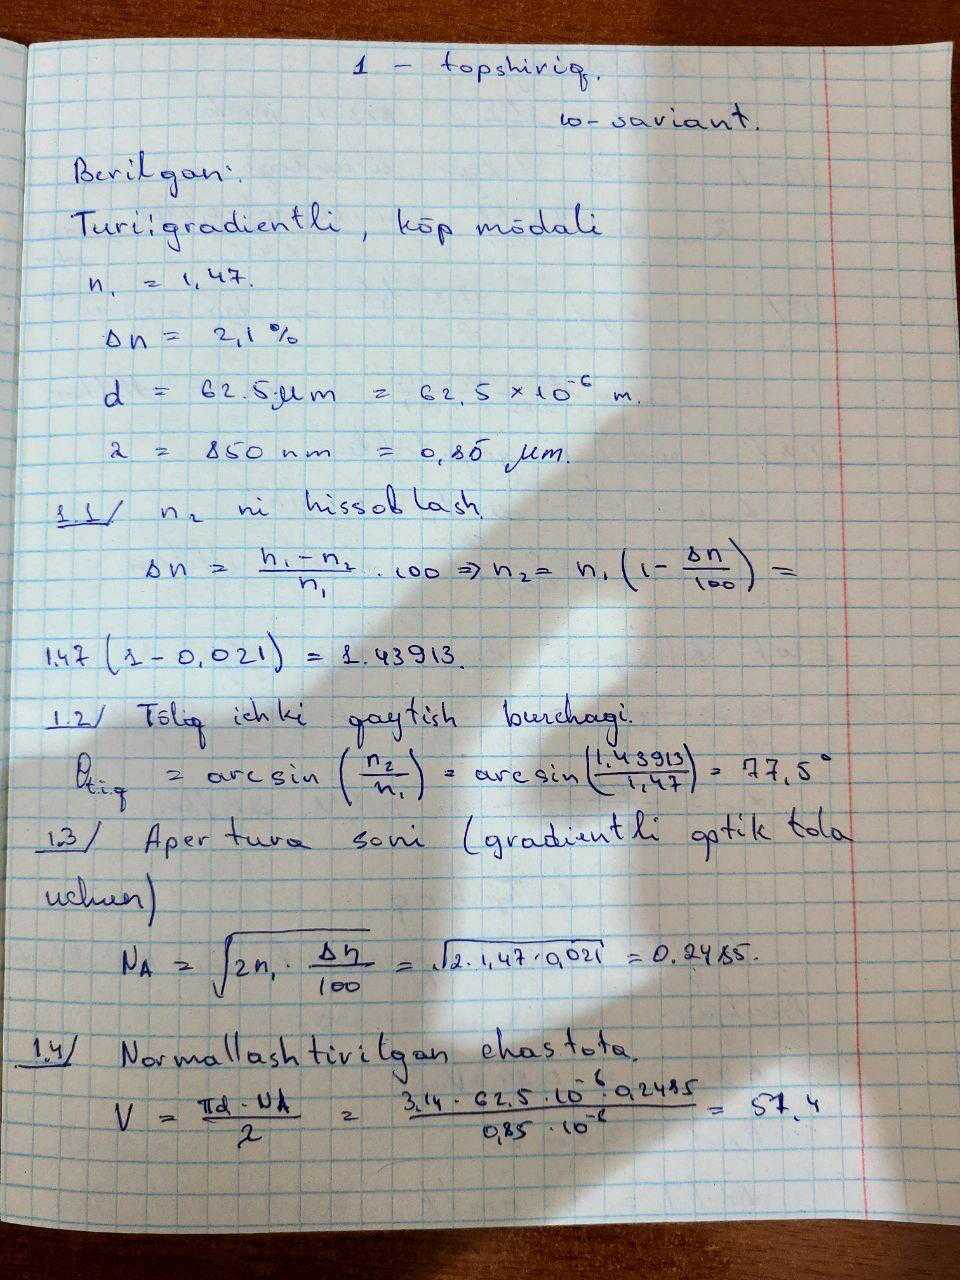 1 - topshiriq.
10-variant.
Berilgan:
Turi: gradientli, kōp mōdali
n₁ = 1,47.
Δn = 2,1%
d = 62.5 μm = 62,5 × 10⁻⁶ m.
λ = 850 nm = 0,85 μm.
1.1/ n₂ ni hissoblash.
Δn = (n₁ - n₂)/n₁ · 100 ⇒ n₂ = n₁ (1 - Δn/100) =
1.47 (1 - 0,021) = 1.43913.
1.2/ Tōliq ichki qaytish burchagi.
θt.i.q = arcsin (n₂/n₁) = arcsin (1,43913/1,47) = 77,5°
1.3/ Apertura soni (gradientli optik tola
uchun)
NA = √(2n₁ · Δn/100) = √(2·1,47·0,021) = 0.2485.
1.4/ Normallashtirilgan chastota.
V = πd · NA/λ = 3,14 · 62,5 · 10⁻⁶ · 0,2485/0,85 · 10⁻⁶ = 57,4